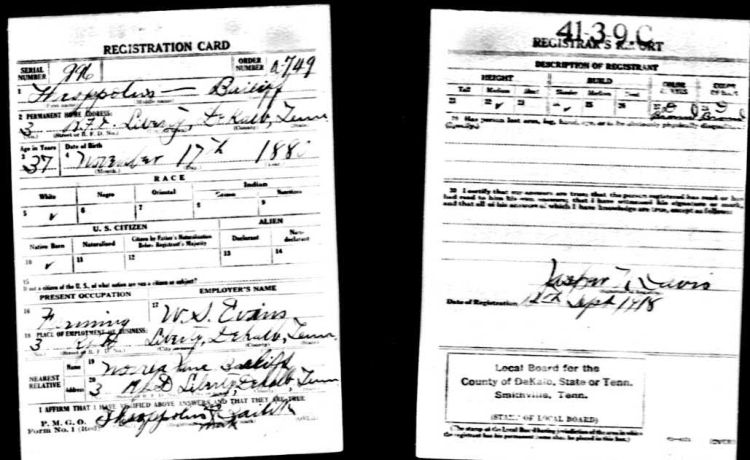 REGISTRATION CARD
SERIAL NUMBER 996 ORDER NUMBER a749
1 Theppolus — Bailiff
2 PERMANENT HOME ADDRESS:
3 R.F.D. Liberty, DeKalb, Tenn
(No.) (Street or R. F. D. No.) (County) (State)
Age in Years Date of Birth
3 37 4 November 17th 188
(Month.) (Day.)
RACE
White Negro Oriental Indian
Citizen Noncitizen
5 ✓ 6 7 8 9
U. S. CITIZEN ALIEN
Native Born Naturalized Citizen by Father's Naturalization Before Registrant's Majority Declarant Non-declarant
10 ✓ 11 12 13 14
15 If not a citizen of the U. S., of what nation are you a citizen or subject?
PRESENT OCCUPATION EMPLOYER'S NAME
16 Farming 17 W. S. Evans
18 PLACE OF EMPLOYMENT OR BUSINESS:
3 Liberty, DeKalb, Tenn
NEAREST RELATIVE
Name 19 Bailiff
Address 20 3 R.F.D Liberty DeKalb, Tenn
I AFFIRM THAT I HAVE VERIFIED ABOVE ANSWERS AND THAT THEY ARE TRUE
P. M. G. O.
Form No. 1 (Red) Theppolus Bailiff
mark
41-3-9.C
REGISTRAR'S REPORT
DESCRIPTION OF REGISTRANT
HEIGHT BUILD COLOR OF EYES COLOR OF HAIR
Tall Medium Short Slender Medium Stout
21 22 ✓ 23 24 ✓ 25 26 27 Brown 28 Brown
29 Has person lost arm, leg, hand, eye, or is he obviously physically disqualified?
(Specify.)
30 I certify that my answers are true; that the person registered has read or has had read to him his own answers; that I have witnessed his signature or mark, and that all of his answers of which I have knowledge are true, except as follows:
Davis
Date of Registration 12th Sept 1918
Local Board for the
County of DeKalb, State of Tenn.
Smithville, Tenn.
(STAMP OF LOCAL BOARD)
(The stamp of the Local Board having jurisdiction of the area in which the registrant has his permanent home shall be placed in this box.)
(OVER)